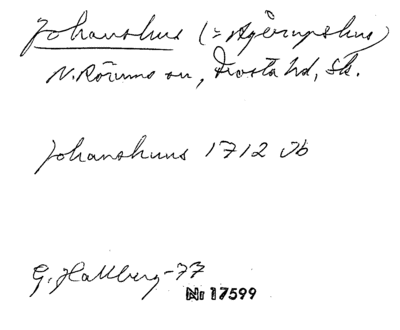 Johanshus (= Agerupshus)
N. Rörums sn, Frosta hd, Sk.
Johanshuus 1712 Jb
G. Hallberg -77
Nr 17599